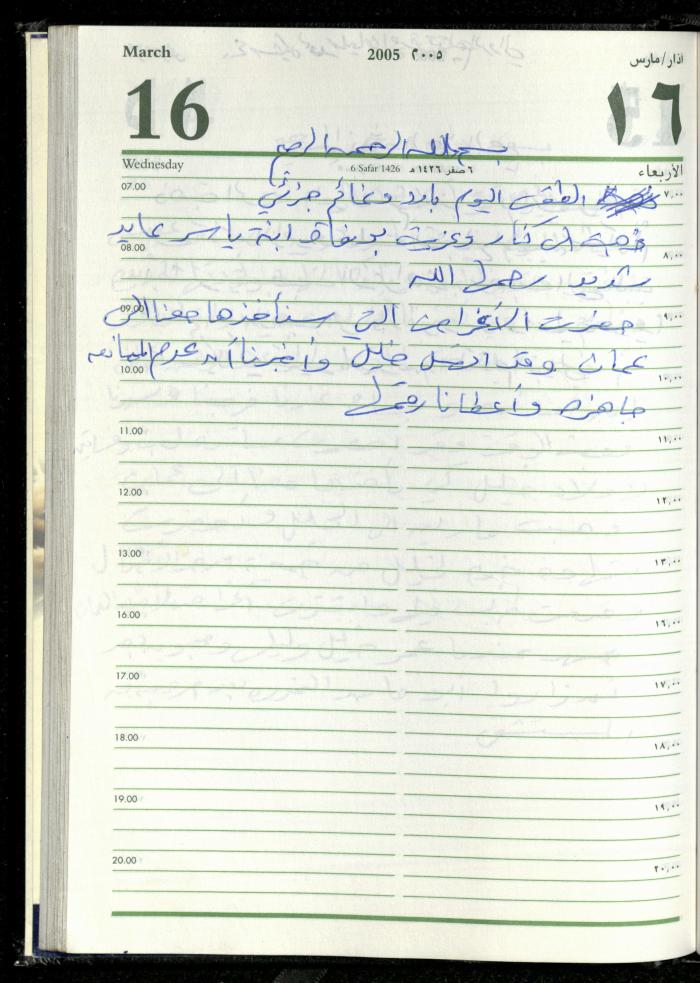 March 2005 ٢٠٠٥ اذار/مارس
16 ١٦
بسم الله الرحمن الرحيم
Wednesday 6 Safar 1426 ٦ صفر ١٤٢٦ هـ الأربعاء
07.00 ٧,٠٠
الطقس اليوم بارد وغائم جزئي
ذهبت الى كنار وعزيت بوفاة ابنة ياسر عايد
08.00 ٨,٠٠
شديد رحمها الله
09.00 ٩,٠٠
حضرت الأغراض التي سنأخذها معنا الى
عمان وقد اتصل خليل وأخبرنا أن عدم الممانعه
10.00 ١٠,٠٠
جاهزه وأعطانا رقمها
11.00 ١١,٠٠
12.00 ١٢,٠٠
13.00 ١٣,٠٠
16.00 ١٦,٠٠
17.00 ١٧,٠٠
18.00 ١٨,٠٠
19.00 ١٩,٠٠
20.00 ٢٠,٠٠